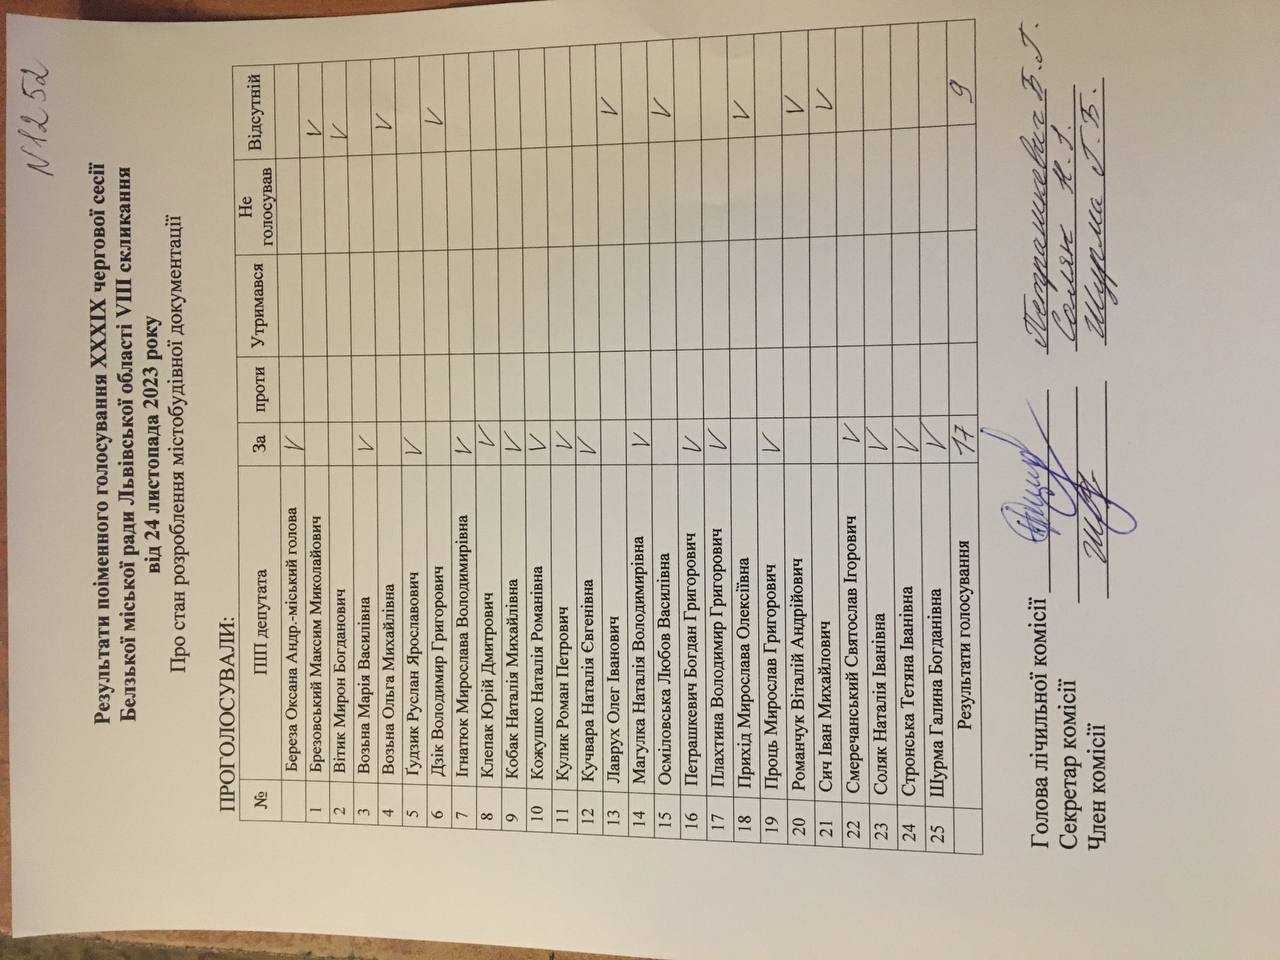 N1252
Результати поіменного голосування XXXIX чергової сесії
Белзької міської ради Львівської області VIII скликання
від 24 листопада 2023 року
Про стан розроблення містобудівної документації
ПРОГОЛОСУВАЛИ:
№ ПІП депутата За проти Утримався Не голосував Відсутній
Береза Оксана Андр.-міський голова V
1 Брезовський Максим Миколайович V
2 Вітик Мирон Богданович V
3 Возьна Марія Василівна V
4 Возьна Ольга Михайлівна V
5 Гудзик Руслан Ярославович V
6 Дзік Володимир Григорович V
7 Ігнатюк Мирослава Володимирівна V
8 Клепак Юрій Дмитрович V
9 Кобак Наталія Михайлівна V
10 Кожушко Наталія Романівна V
11 Кулик Роман Петрович V
12 Кучвара Наталія Євгенівна V
13 Лаврух Олег Іванович V
14 Магулка Наталія Володимирівна V
15 Осміловська Любов Василівна V
16 Петрашкевич Богдан Григорович V
17 Плахтина Володимир Григорович V
18 Прихід Мирослава Олексіївна V
19 Проць Мирослав Григорович V
20 Романчук Віталій Андрійович V
21 Сич Іван Михайлович V
22 Смеречанський Святослав Ігорович V
23 Соляк Наталія Іванівна V
24 Стронська Тетяна Іванівна V
25 Шурма Галина Богданівна V
Результати голосування 17 9
Голова лічильної комісії Петрашкевич Б.Г.
Секретар комісії Соляк Н.І.
Член комісії Шурма Г.Б.